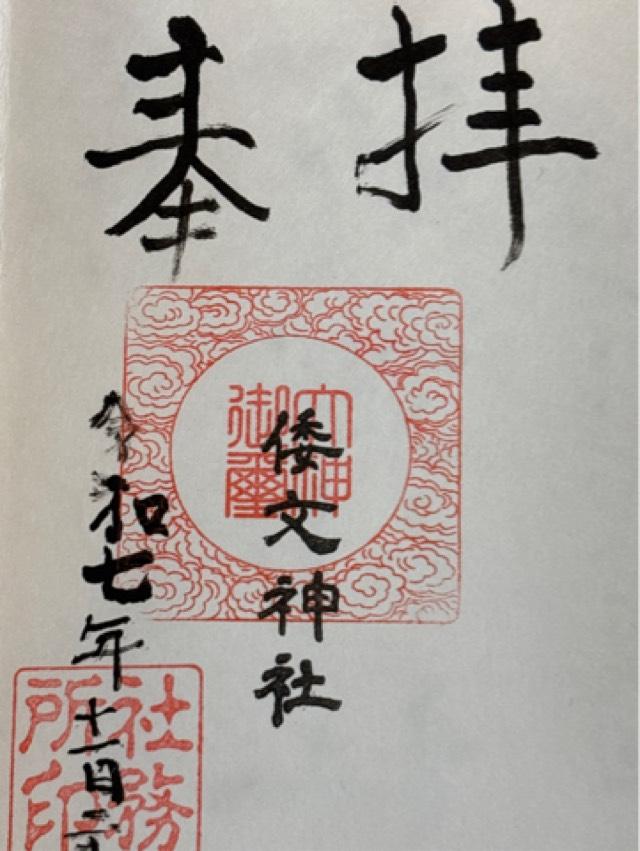 奉拝
倭文神社
令和七年十一月二
御璽
社務所印